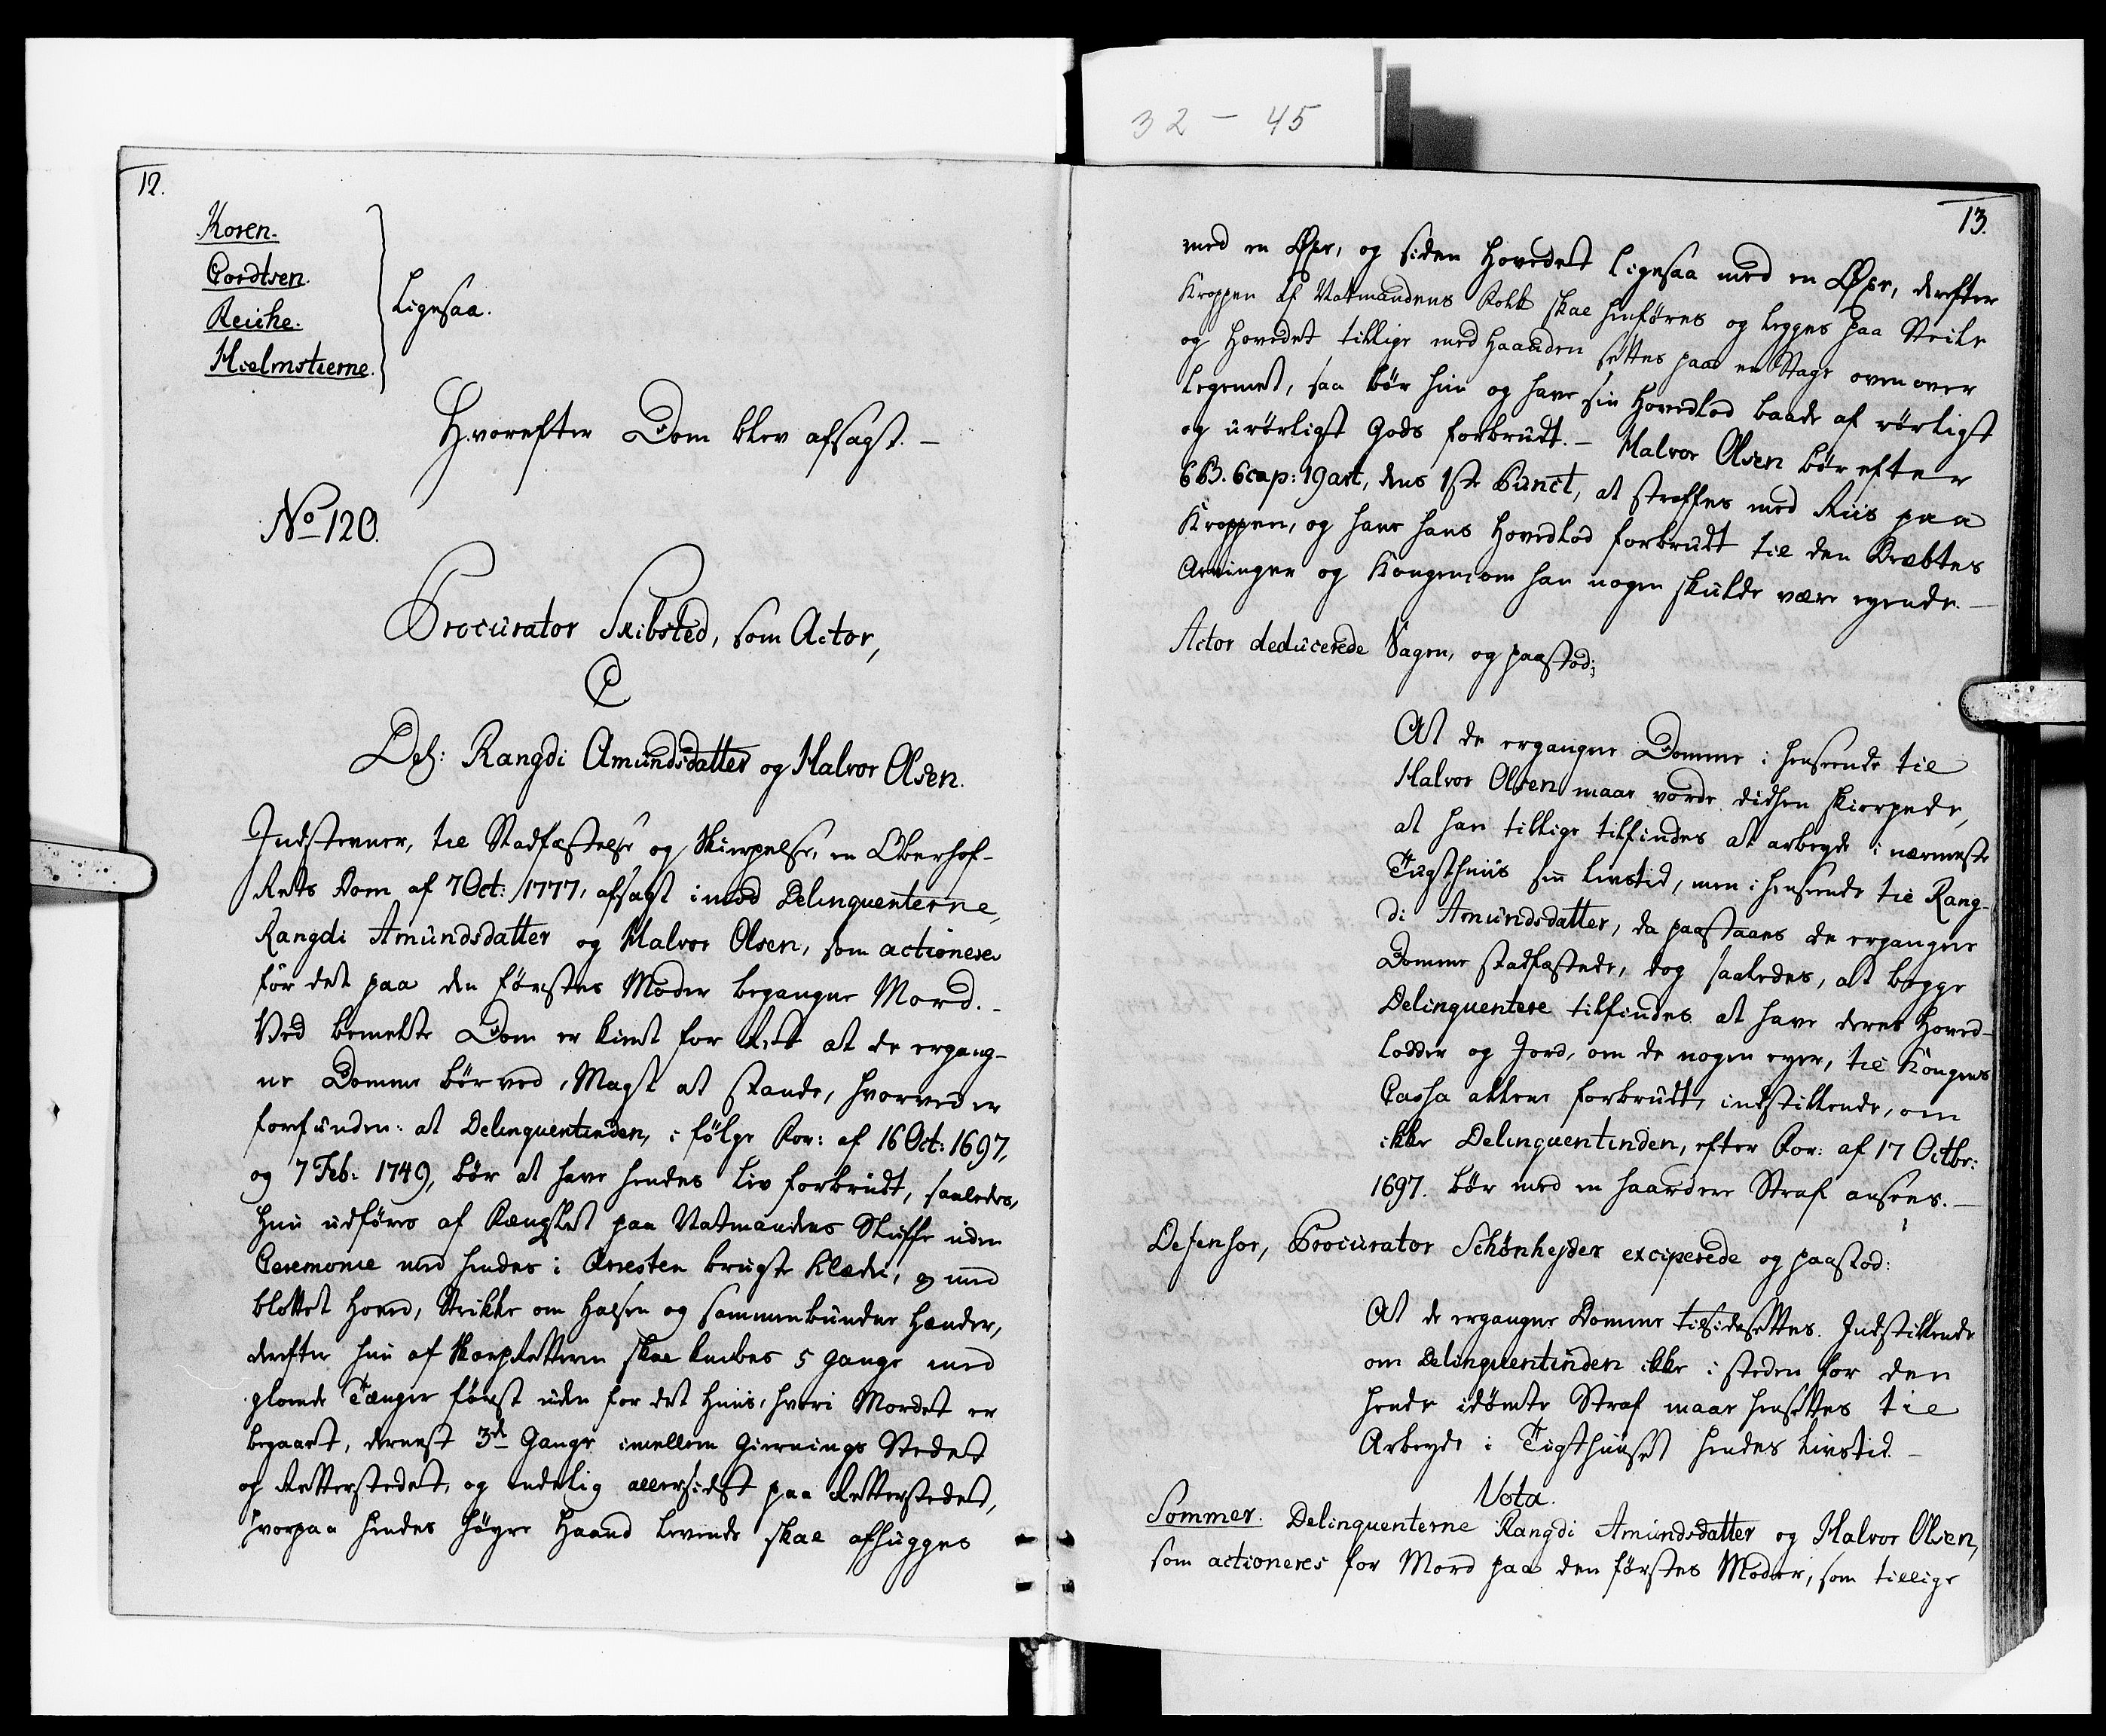 32 - 45
12.
Koren.
Cordtsen.
Reiche.
Hielmstierne.
Ligesaa.
Hvorefter Dom blev afsagt. -
No 120.
Procurator Skibsted, som Actor,
C
Del: Rangdi Amundsdatter og Halvor Olsen.
Indstevner, til Stadfæstelse og Skierpelse, en Oberhof-
Rets Dom af 7 Oct: 1777, afsagt imod Delinqventerne,
Rangdi Amundsdatter og Halvor Olsen, som actioneres
for det paa den førstes Moder begangne Mord. -
Ved bemelte Dom er kient for Ret at de ergang-
ne Domme bør ved Magt at stande, hvorved er
forefunden: at Delinqventinden, i følge For: af 16 Oct: 1697,
og 7 Feb: 1749, bør at have hendes Liv forbrudt, saaledes,
hun udføres af Fængslet paa Natmandens Sluffe uden
Ceremonie med hendes i Arresten brugte Klæder, og med
blottet Hoved, Strikke om Halsen og sammenbundne Hænder,
derefter hun af Skarpretteren skal knibes 5 gange med
gloende Tænger først uden for det Huus, hvori Mordet er
begaaet, dernest 3de Gange imellem Giernings Stedet
og Retterstedet, og endelig allersidst paa Retterstedet,
hvorpaa hendes høyre Haand levende skal afhugges
13.
med en Øxe, og siden Hovedet ligesaa med en Øxe, derefter
Kroppen af Natmandens Folk skal henføres og legges paa Steile
og Hovedet tillige med Haanden settes paa en Stage oven over
Legemet, saa bør hun og have sin Hovedlod baade af rørligt
og urørligt Gods forbrudt. - Halvor Olsen bør efter
6 B. 6 cap: 19 art, dens 1ste Punct, at straffes med Riis paa
Kroppen, og have hans Hovedlod forbrudt til den Dræbtes
Arvinger og Kongen om han nogen skulde være eyende. -
Actor deducerede Sagen, og paastod;
At de ergangne Domme i henseende til
Halvor Olsen maae vorde didhen skierpede,
at han tillige tilfindes at arbeyde i nærmeste
Tugthuus sin Livstid, men i henseende til Rang-
di Amundsdatter, da paastaaes de ergangne
Domme stadfæstede, dog saaledes, at begge
Delinqventere tilfindes at have deres Hoved-
lodder og Jord, om de nogen eyer, til Kongens
Cassa allene forbrudt, indstillende, om
ikke Delinqventinden, efter For: af 17 Octbr:
1697. bør med en haardere Straf ansees. -
Defensor, Procurator Schønheyder exciperede og paastod:
At de ergangne Domme tilsidesettes. Indstillende
om Delinqventinden ikke i steden for den
hende idømte Straf maae hensettes til
Arbeyde i Tugthuuset hendes Livstid. -
Vota.
Sommer. Delinqventerne Rangdi Amundsdatter og Halvor Olsen,
som actioneres for Mord paa den førstes Moder, som tillige